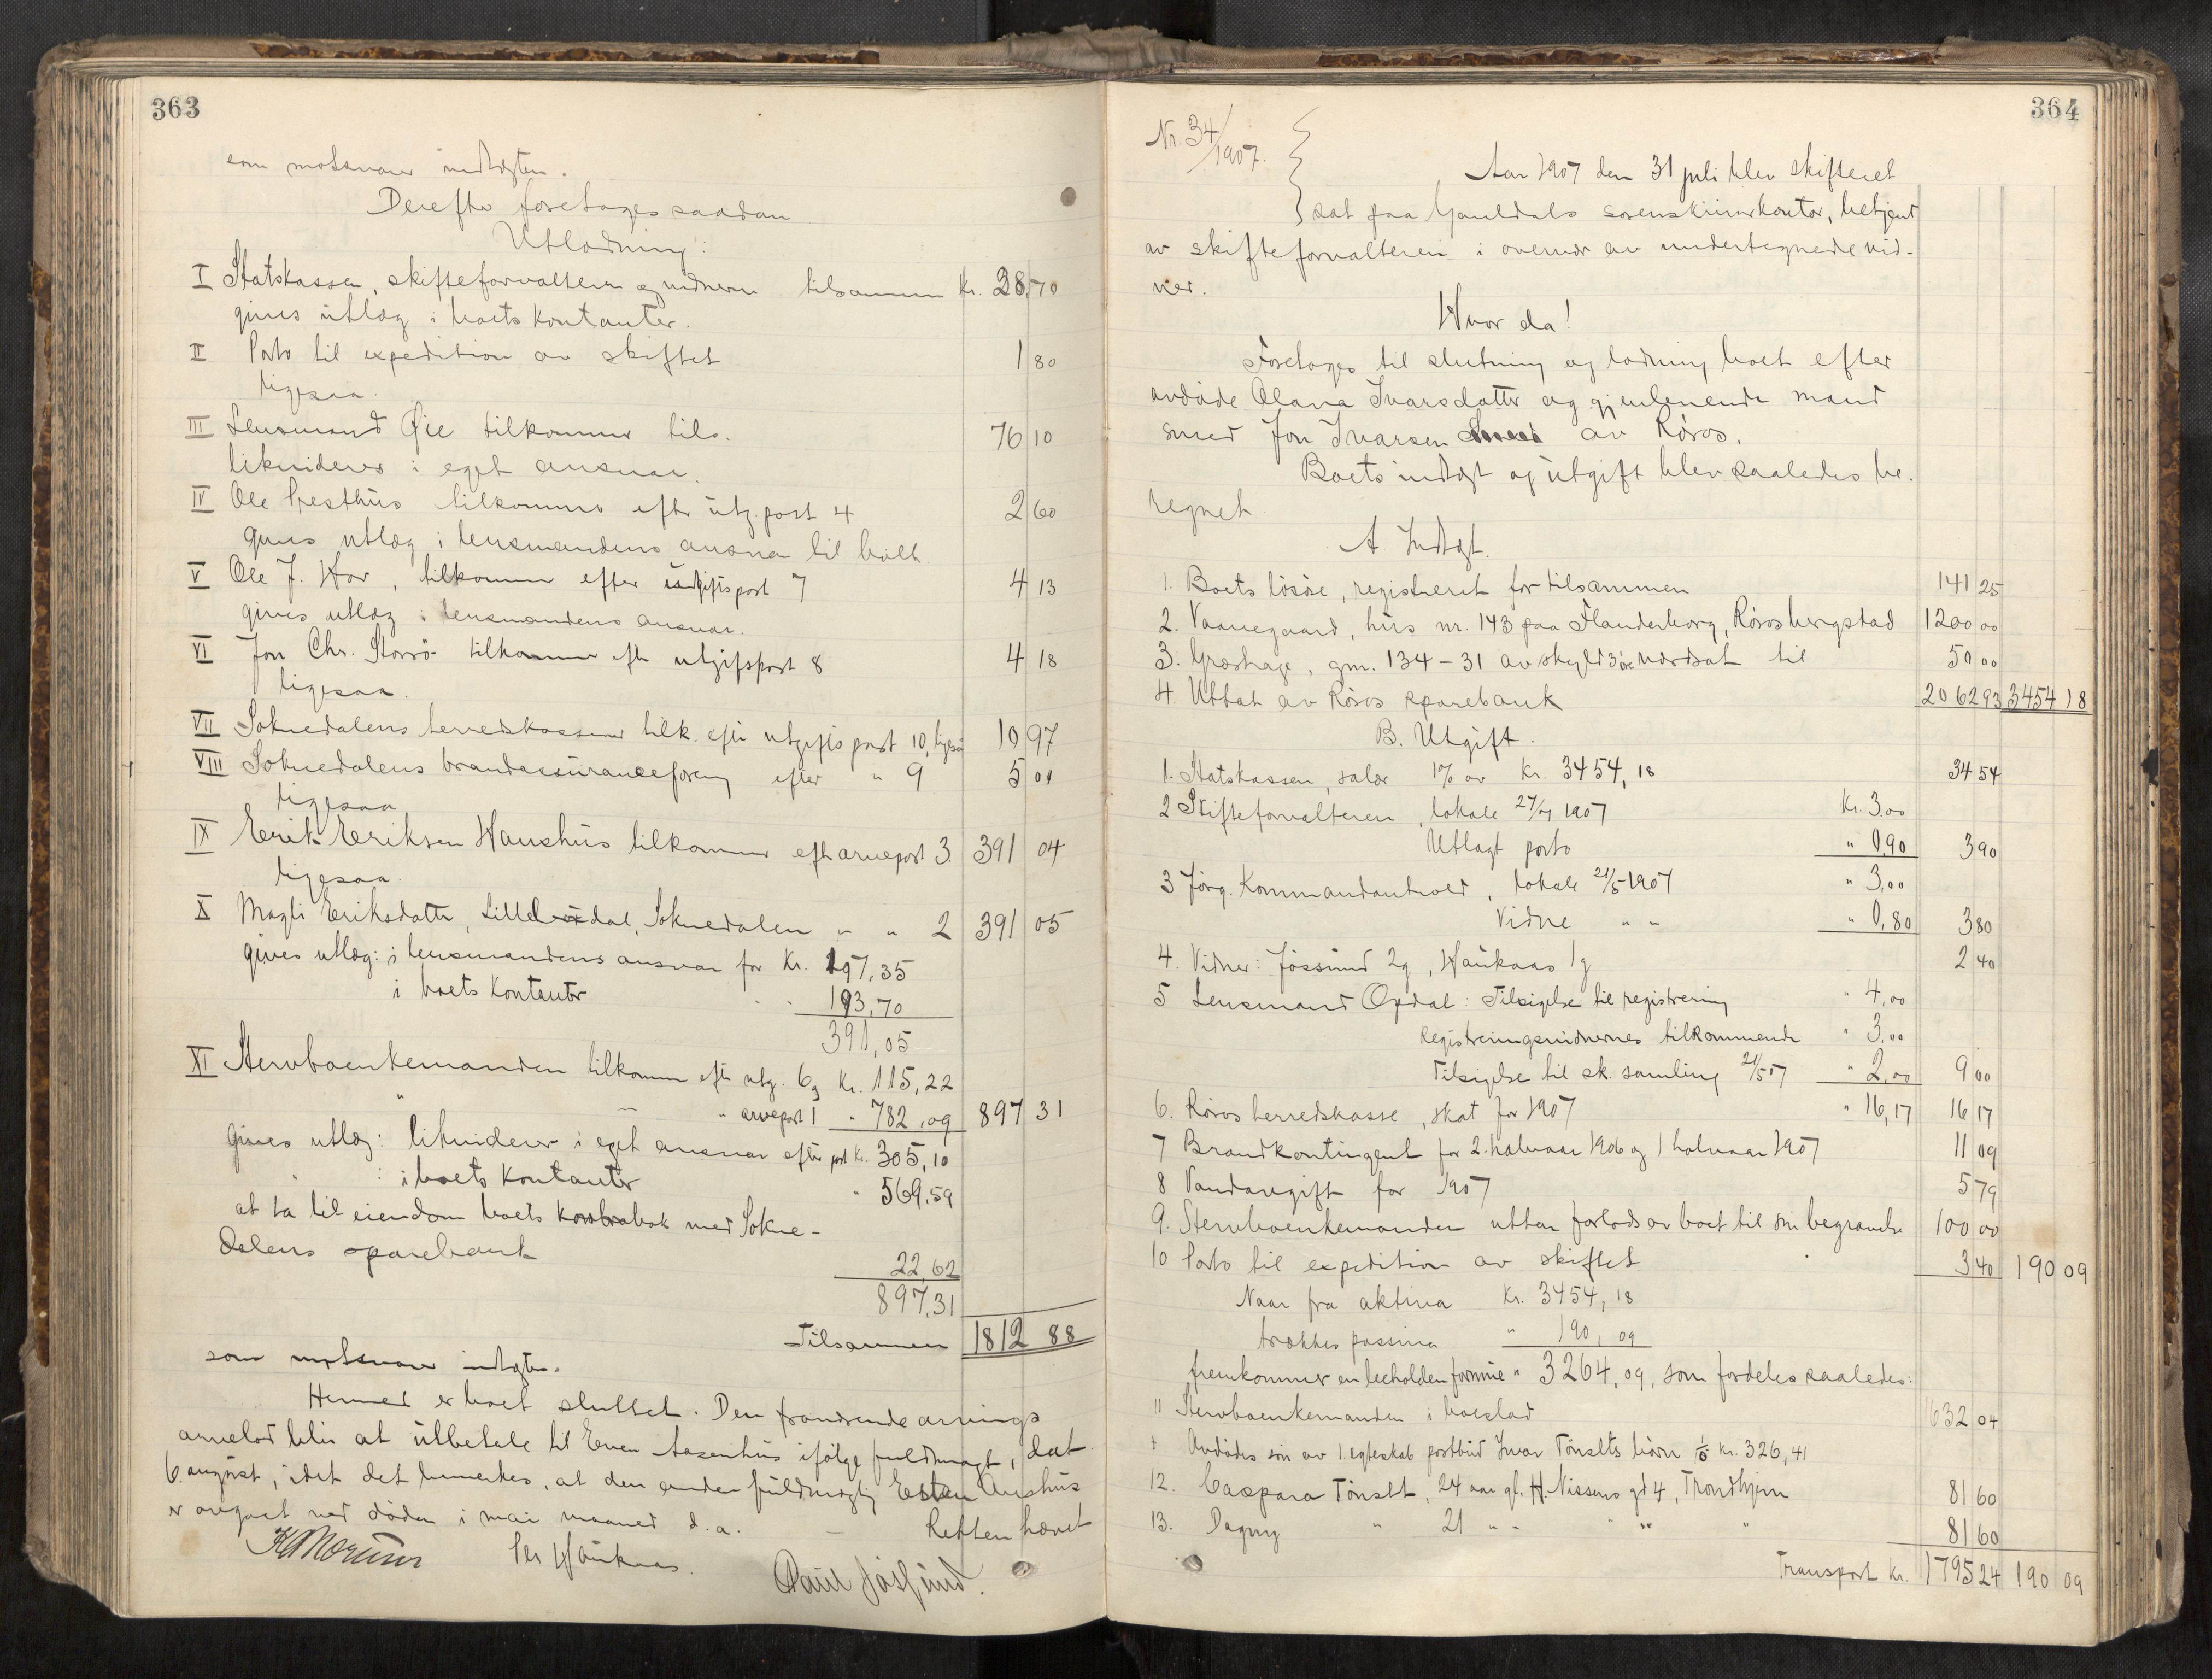 363
som motsvarer indtægten.
Derefter foretages saadan
Utlodning:
I Statskassen, skifteforvalteren og vidnerne tilsammen Kr. 38,70
gives utlæg i boets kontanter.
II Porto til expedition av skiftet 1 80
ligesaa.
III Lensmand Øie tilkommer tils. 76 10
likviderer i eget ansvar.
IV Ole Presthus tilkommer efter utg. post 4 2 60
gives utlæg i lensmandens ansvar til boet
V Ole J. Hov, tilkommer efter utgiftspost 7 4 13
gives utlæg i lensmandens ansvar.
VI Jon Chr. Storrø tilkommer eft. utgiftspost 8 4 18
ligesaa.
VII Soknedalens herredskasserer tilk. eft. utgiftspost 10, ligesaa 10 97
VIII Soknedalens brandassuranceforening efter " 9 5 01
ligesaa
IX Erik Eriksen Haushus tilkommer eft. arvepost 3. 391 04
ligesaa.
X Magli Eriksdatter, Soknedalen " " 2 391 05
gives utlæg: i lensmandens ansvar for Kr. 197,35
i boets kontanter " " 193,70
391,05
XI Stervboenkemanden tilkommer eft. utg. 6, Kr. 115,22
" — " arvepost 1 " 782,09 897 31
gives utlæg: likviderer i eget ansvar efter post Kr. 305,10
" : i boets kontanter " 569,59
at ta til eiendom boets kontrabok med Sokne-
dalens sparebank 22,62
897,31
Tilsammen 1812 88
som motsvarer indtægten.
Hermed er boet sluttet. Den fraværende arvings
arvelod blir at utbetale til Even Aasenhus ifølge fuldmagt, dat.
6. august, idet det bemerkes, at den anden fuldmægtig Esten Aushus
er avgaat ved døden i mai maaned d.a. — Retten hævet
K Norum Per Haukaas. Paul Jøssund.
364
Nr. 34/1907.
Aar 1907 den 31 juli blev skifteret
sat paa Gauldals sorenskriverkontor, betjent
av skifteforvalteren i overvær av undertegnede vid-
ner.
Hvor da!
Foretages til slutning og lodning boet efter
avdøde Olava Ivarsdatter og gjenlevende mand
smed Jon Ivarsen av Røros.
Boets indtægt og utgift blev saaledes be-
regnet
A. Indtægt.
1. Boets løsøre, registreret for tilsammen 141 25
2. Vaanegaard, hus nr. 143 paa Flanderborg, Røros bergstad 1200 00
3. Græshage, gnr. 134-31 av skyld 3 øre værdsat til 50 00
4. Uttat av Røros sparebank 2062 93 3454 18
B. Utgift.
1. Statskassen, salær 1% av Kr. 3454,18 34 54
2 Skifteforvalteren, lokale 27/7 1907 Kr. 3.00
Utlagt porto " 0,90 3 90
3 Jørg. Kommandantvold, lokale 21/5 1907 " 3,00
Vidne " " " 0,80 3 80
4. Vidner: Jøssund 2g, Haukaas 1g 2 40
5 Lensmand Opdal: Tilsigelse til registrering " 4,00
registreringsvidnernes tilkommende " 3,00
Tilsigelse til sk. samling 21/5 07 " 2,00 9 00
6. Røros herredskasse, skat for 1907 " 16,17 16 17
7 Brandkontingent for 2. halvaar 1906 og 1 halvaar 1907 11 09
8 Vandavgift for 1907 5 79
9. Stervboenkemanden uttar forlods av boet til sin begravelse 100 00
10 Porto til expedition av skiftet 3 40 190 09
Naar fra aktiva Kr. 3454,18
trækkes passiva " 190,09
fremkommer en beholden formue " 3264,09, som fordeles saaledes:
11 Stervboenkemanden i boeslod 1632 04
Avdødes søn av 1. egteskab postbud Ivar Tønsets børn Kr. 326,41
12. Caspara Tønset, 24 aar gl. H. Nissens gd 4, Trondhjem 81 60
13. Dagny " 21 " " " " " 81 60
Transport Kr. 1795 24 190 09